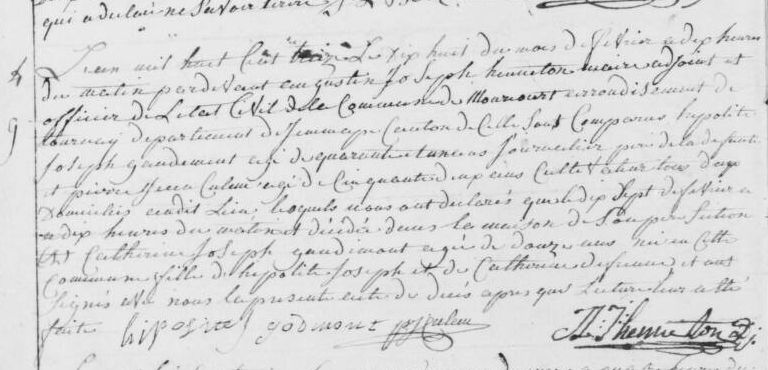 qui a déclaré ne savoir écrire
L'an mil huit cent treize Le dix huit du mois de fevrier a dix heures
N
du matin pardevant augustin Joseph henneton maire adjoint et
officier de L'etat Civil de la Commune de Mourcourt arrondissement de
9
tournay departement de Jemmape Canton de Celle Sont Comparus hypolite
Joseph gaudement agé de quarante et un ans Journalier pere de la defunte
et pierre Joseph Culem agé de Cinquante deux ans Cultivateur tous deux
Domiciliés audit Lieu lesquels nous ont declarés que le dix Sept de fevrier a
a dix heures du matin est décédée dans la maison de
Catherine Joseph gaudimont agée de douze ans née en Cette
Commune fille de hypolite Joseph et de Catherine et ont
Signés avec nous le présent acte de decés apres que Lecture leur a été
faite hipolite godmont
henneton adj.